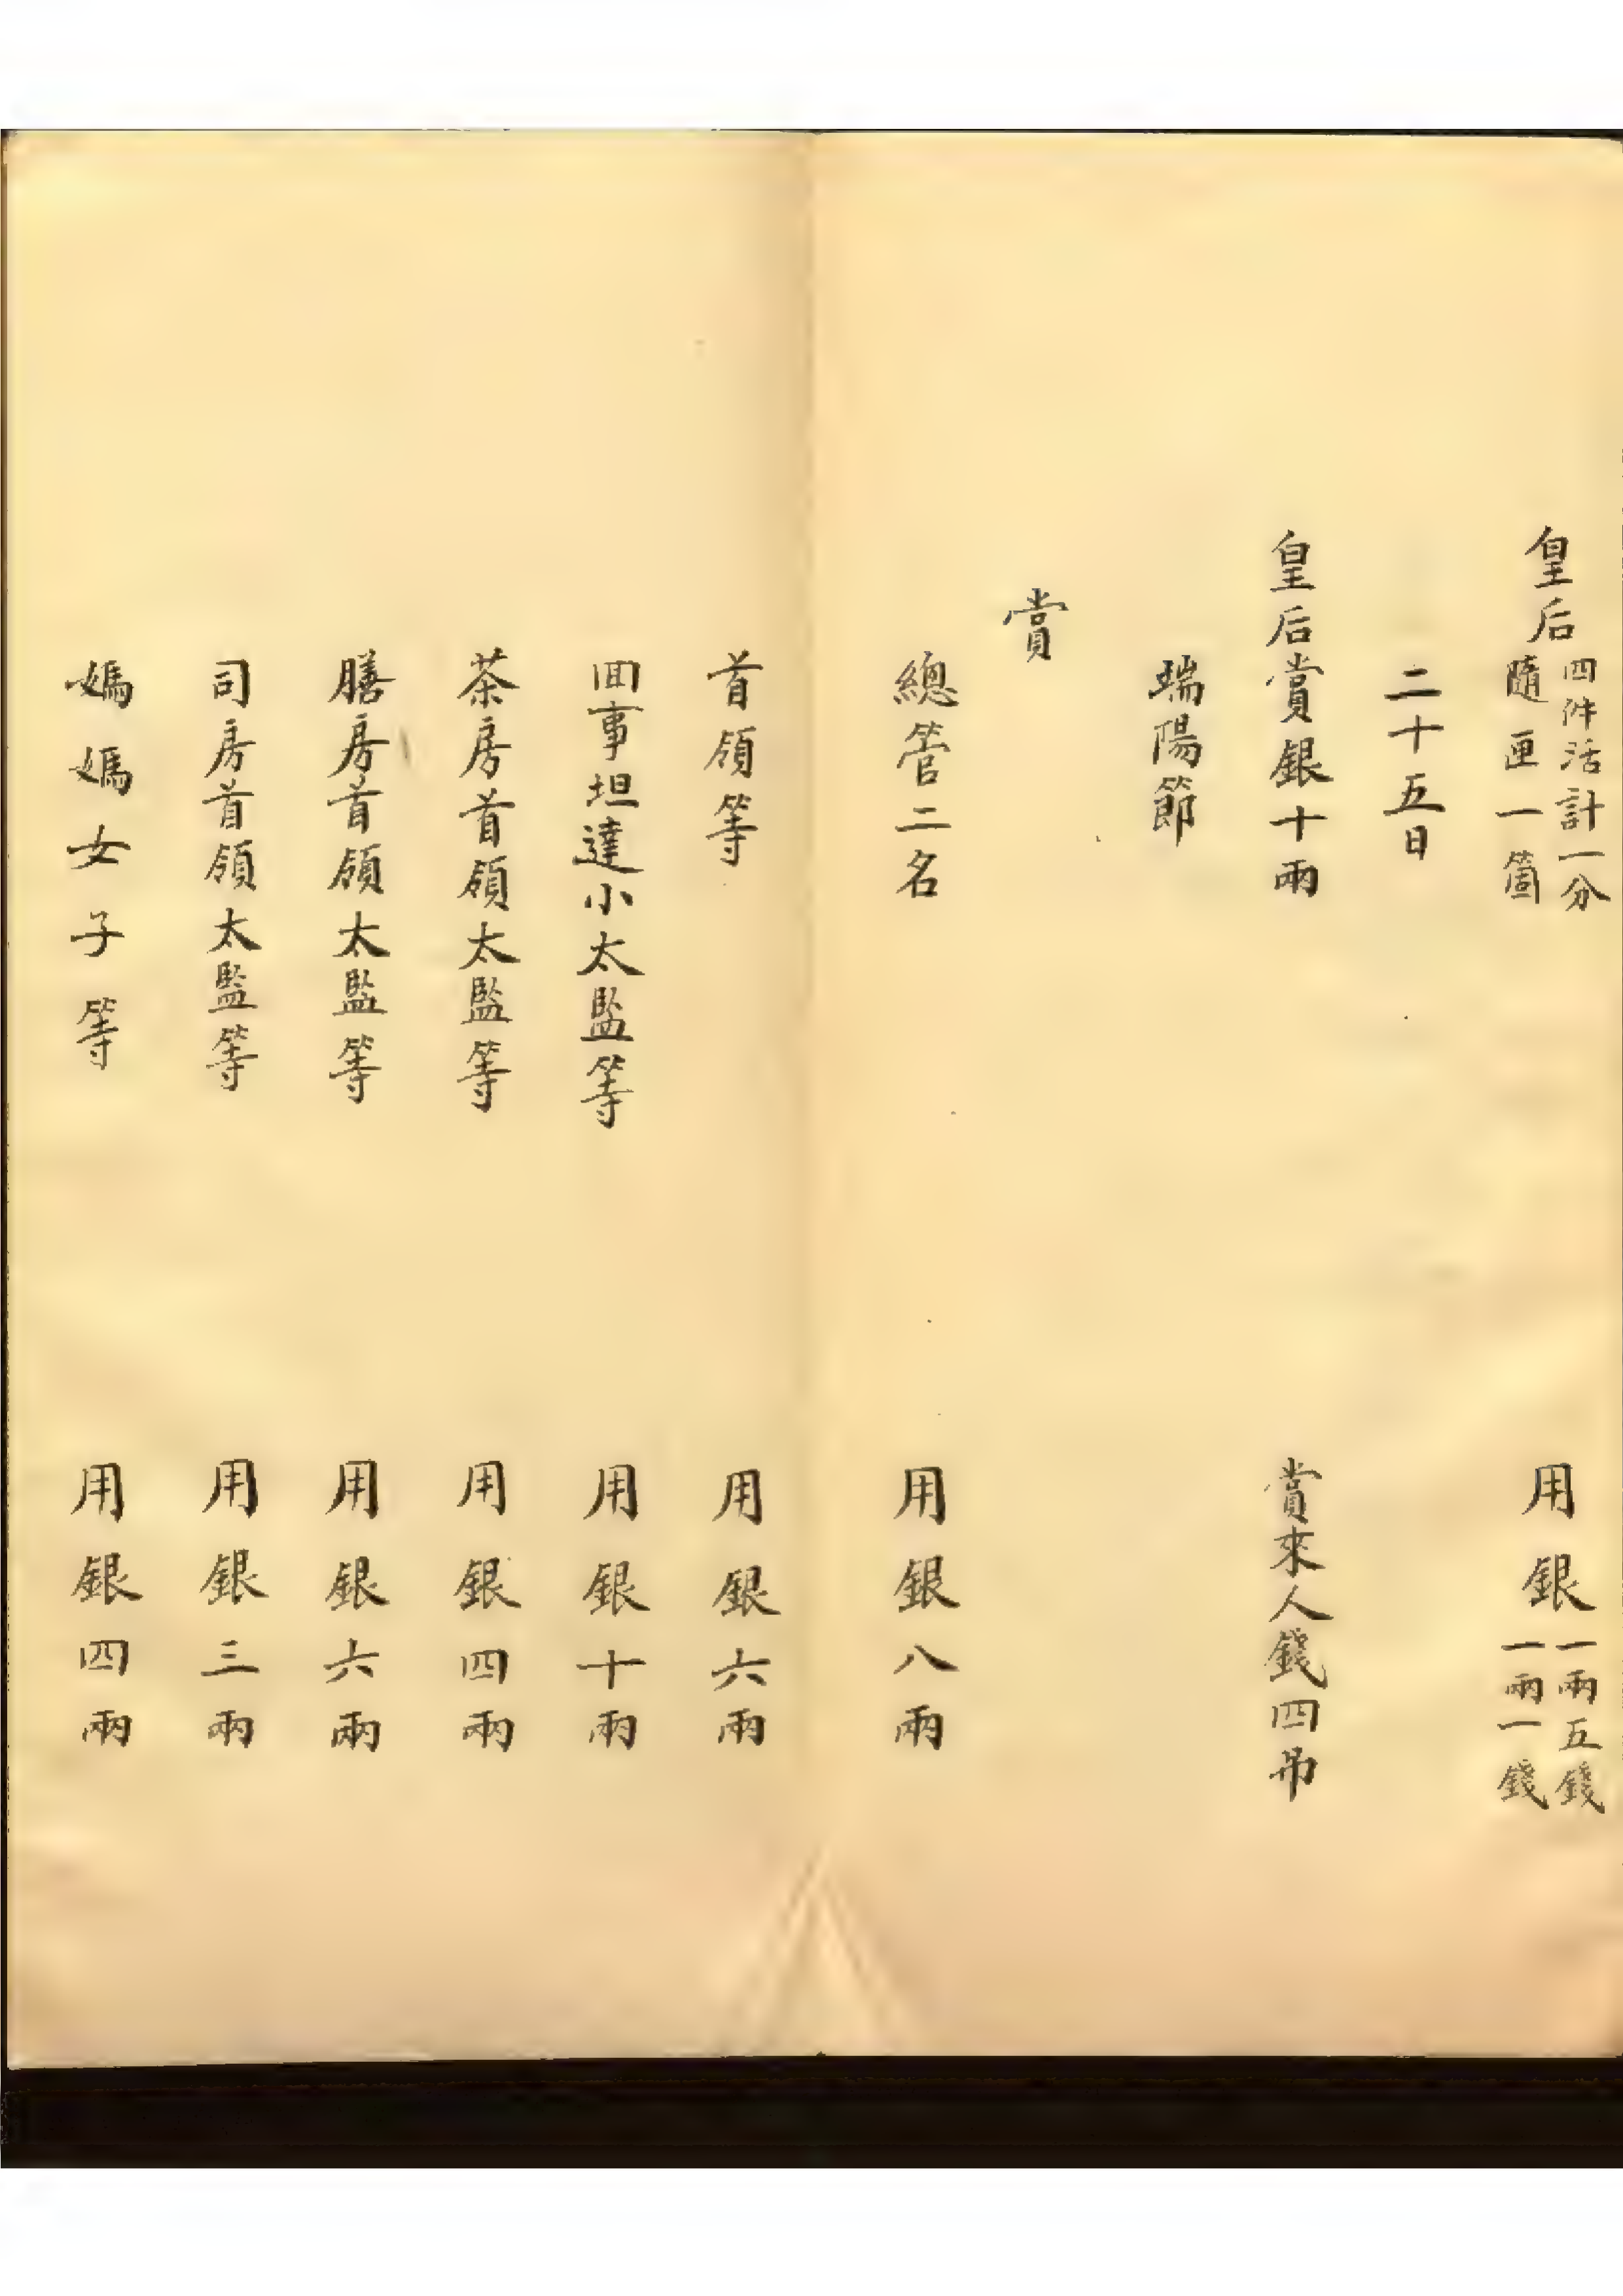 皇后四件活計一分隨匣一箇 用銀一兩五錢一兩一錢
二十五日
皇后賞銀十兩 賞來人錢四吊
瑞陽節
賞
總管二名 用銀八兩
首領等 用銀六兩
回事坦達小太監等 用銀十兩
茶房首領太監等 用銀四兩
膳房首領太監等 用銀六兩
司房首領太監等 用銀三兩
媽媽女子等 用銀四兩